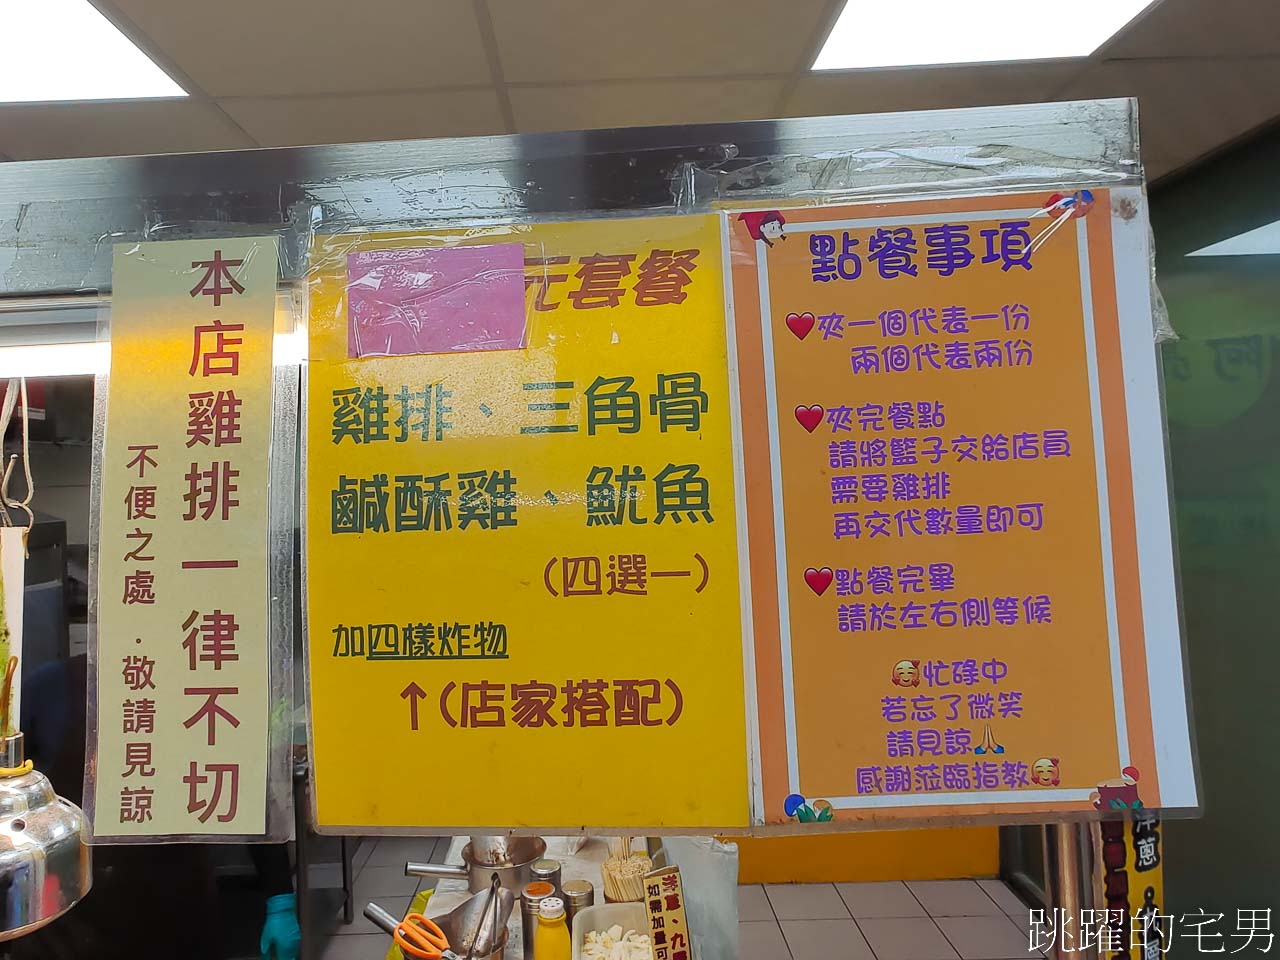 本店雞排一律不切
不便之處．敬請見諒
元套餐
雞排、三角骨
鹹酥雞、魷魚
(四選一)
加四樣炸物
↑(店家搭配)
點餐事項
❤️夾一個代表一份
兩個代表兩份
❤️夾完餐點
請將籃子交給店員
需要雞排
再交代數量即可
❤️點餐完畢
請於左右側等候
🥰忙碌中
若忘了微笑
請見諒🙏
感謝蒞臨指教🥰
洋蔥
如需加量可
阿
跳躍的宅男